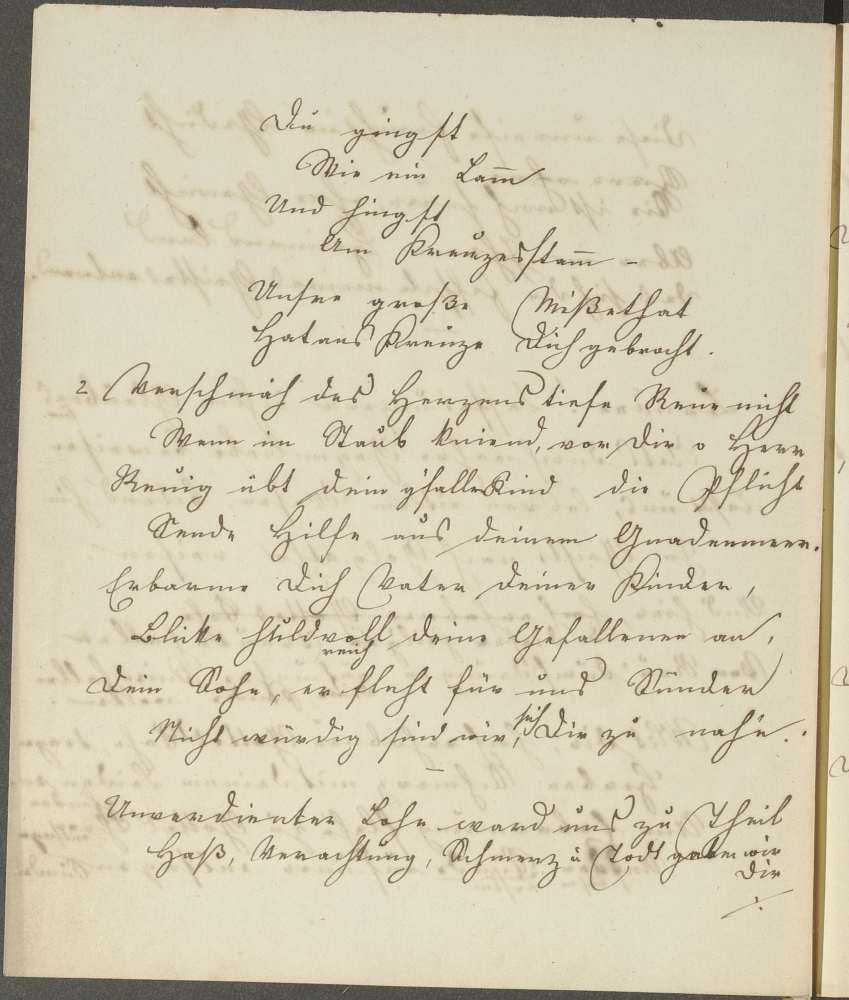 Du gingst
Wie ein Lam̄
Und hingst
Am Kreuzesstam̄ –
Unsre große Mißethat
Hat ans Kreuze Dich gebracht.
2 Verschmäh des Herzens tiefe Reue nicht
Wenn im Staub kniend, vor Dir o Herr
Reuig übt dein g'fallnKind die Pflicht
Sende Hilfe aus deinem Gnadenmeer.
Erbarme Dich Vater deiner Kinder,
Blicke huldvoll deine Gefallenen an,
reich
Dein Sohn, er fleht für uns Sünder
Nicht würdig sind wir, sich Dir zu nah'n.
–
Unverdienter Lohn ward uns zu Theil
Haß, Verachtung, Schmerz u Todt gaben wir
Dir
./.